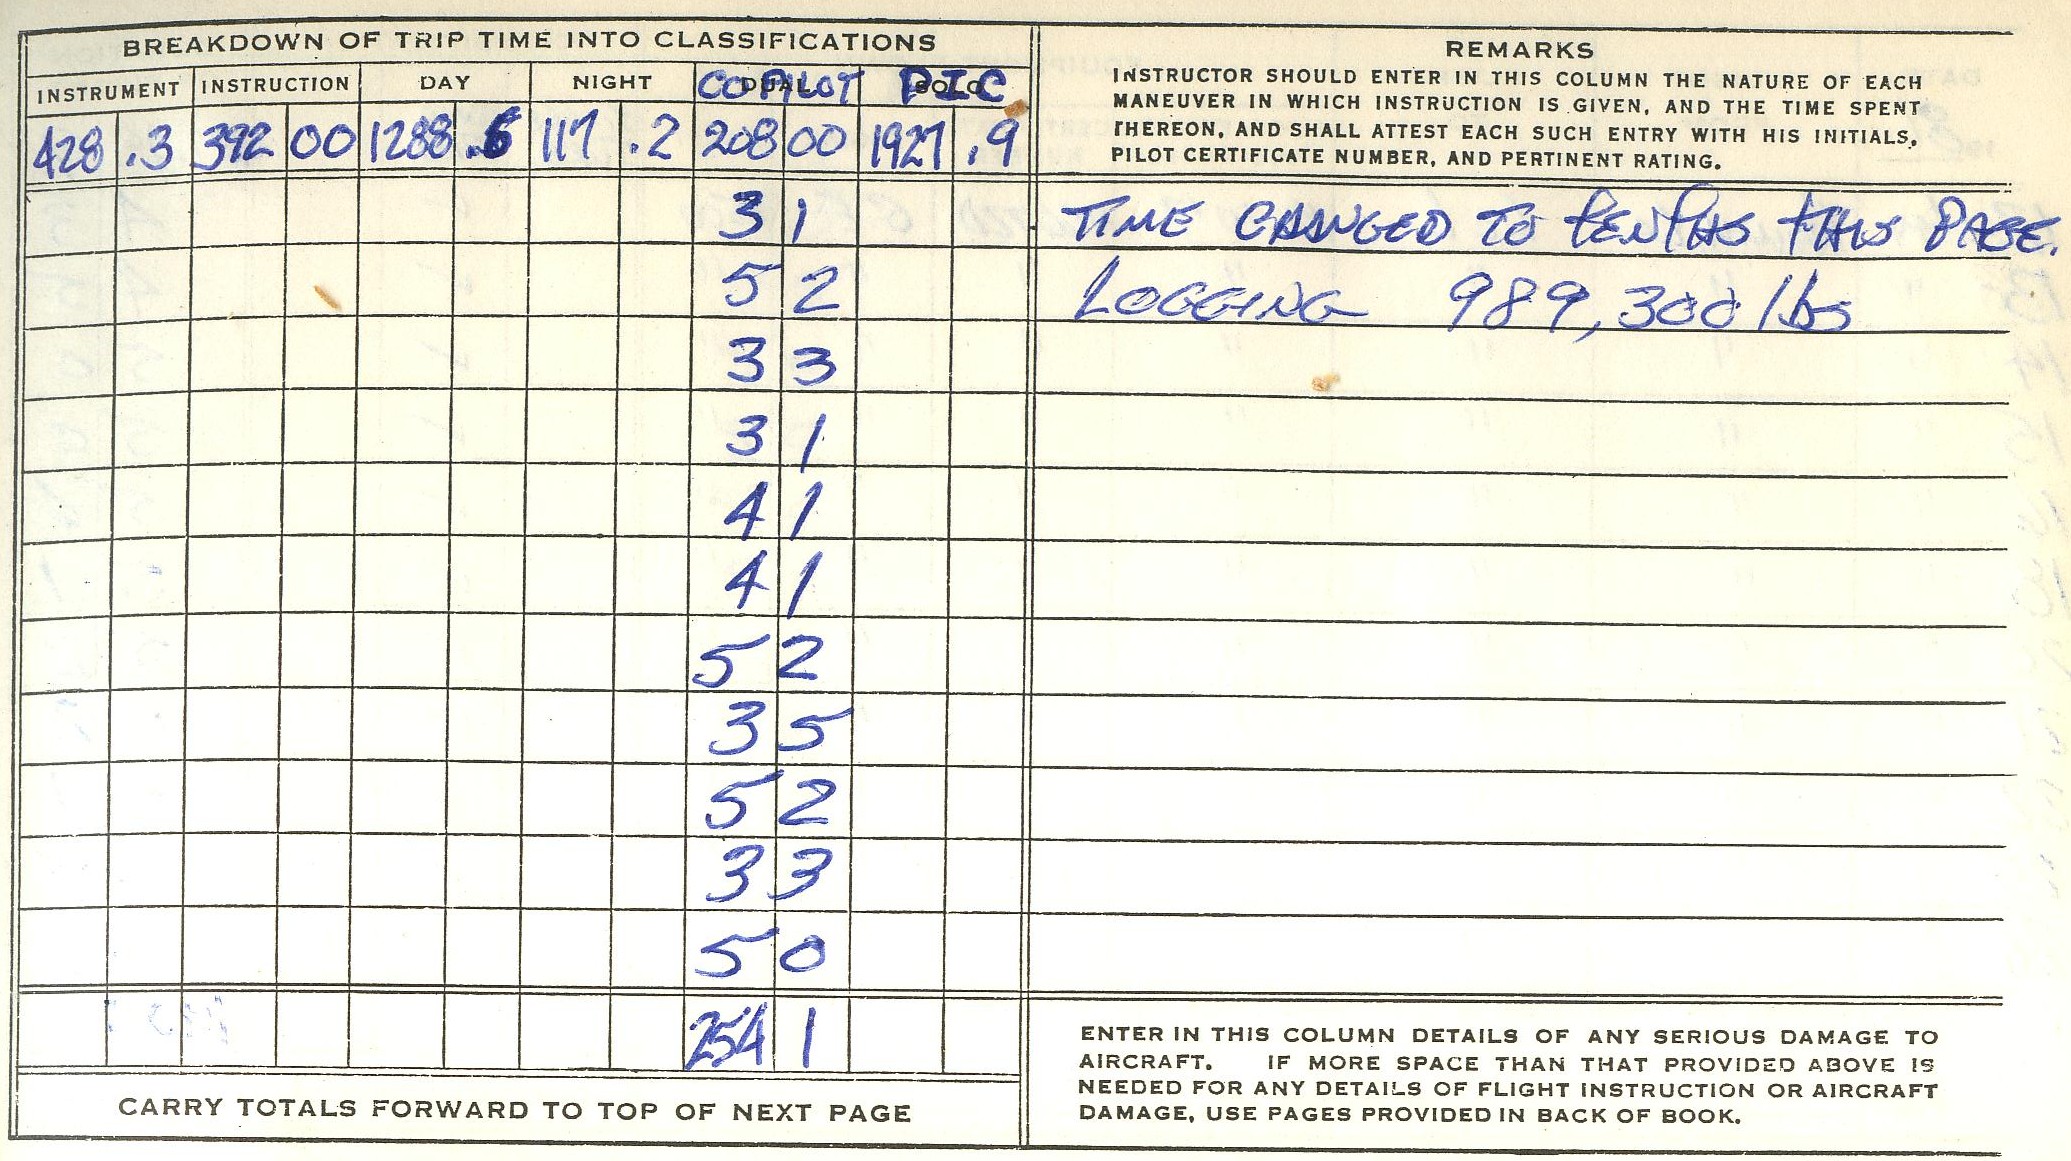 BREAKDOWN OF TRIP TIME INTO CLASSIFICATIONS
INSTRUMENT INSTRUCTION DAY NIGHT COPILOT DUAL PIC SOLO
428 .3 392 00 1288 .6 117 .2 208 00 1927 .9
3 1
5 2
3 3
3 1
4 1
4 1
5 2
3 5
5 2
3 3
5 0
254 1
CARRY TOTALS FORWARD TO TOP OF NEXT PAGE
REMARKS
INSTRUCTOR SHOULD ENTER IN THIS COLUMN THE NATURE OF EACH
MANEUVER IN WHICH INSTRUCTION IS GIVEN, AND THE TIME SPENT
THEREON, AND SHALL ATTEST EACH SUCH ENTRY WITH HIS INITIALS,
PILOT CERTIFICATE NUMBER, AND PERTINENT RATING.
TIME CHANGED TO TENTHS THIS PAGE.
LOGGING 989,300 lbs
ENTER IN THIS COLUMN DETAILS OF ANY SERIOUS DAMAGE TO
AIRCRAFT. IF MORE SPACE THAN THAT PROVIDED ABOVE IS
NEEDED FOR ANY DETAILS OF FLIGHT INSTRUCTION OR AIRCRAFT
DAMAGE, USE PAGES PROVIDED IN BACK OF BOOK.